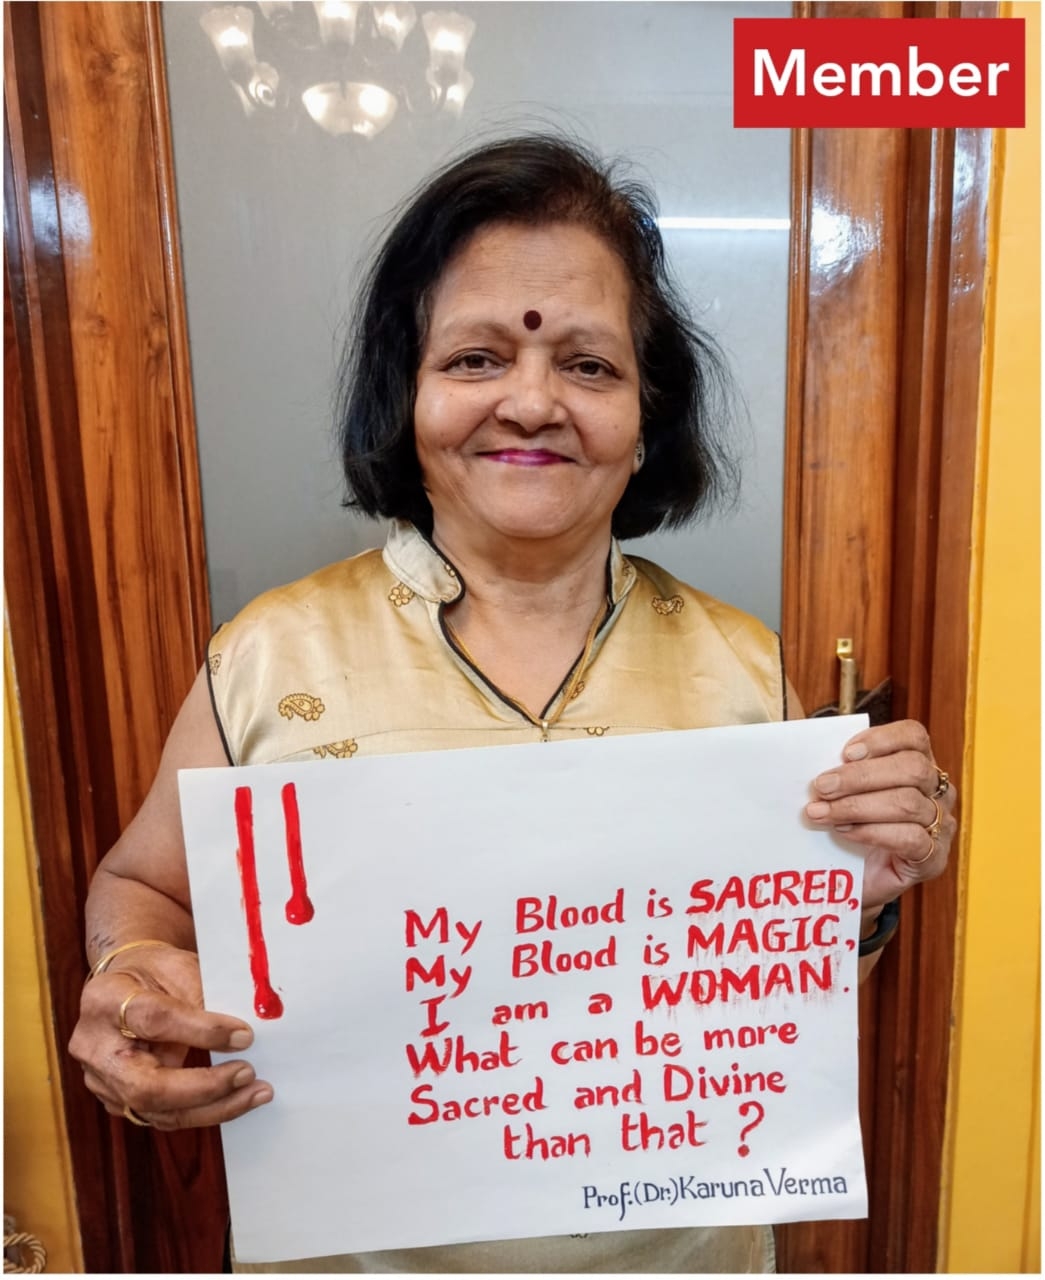 Member
My Blood is SACRED,
My Blood is MAGIC,
I am a WOMAN.
What can be more
Sacred and Divine
than that ?
Prof.(Dr.)Karuna Verma